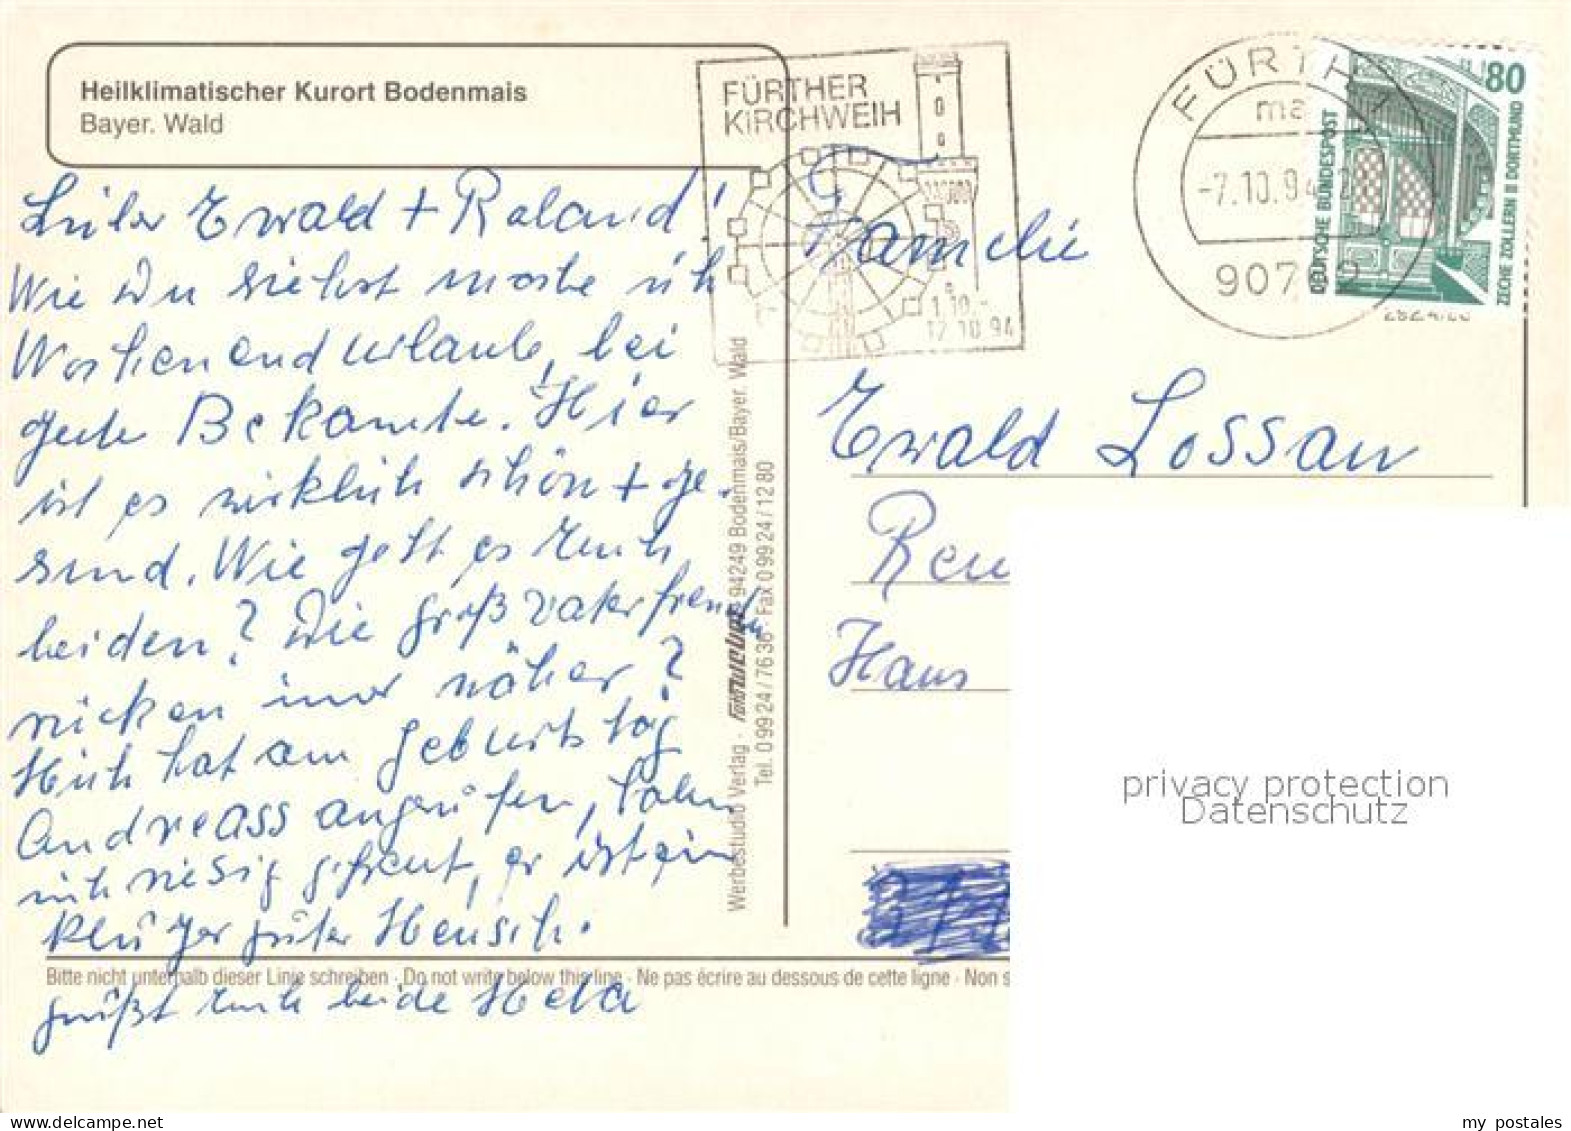 Heilklimatischer Kurort Bodenmais
Bayer. Wald
Lieber Ewald + Roland!
Wie Du siehst mache ich
Wochenendurlaub, bei
gute Bekannte. Hier
ist es wirklich schön + ge-
sund. Wie geht es Euch
beiden? Die Großvaterfreuden
rücken imer näher?
Mich hat am Geburtstag
Andreass angerufen, habe
mich riesig gefreut, er ist ein
kluger guter Mensch.
grüßt euch beide Hela
Bitte nicht unterhalb dieser Linie schreiben · Do not write below this line · Ne pas écrire au dessous de cette ligne · Non s
Werbestudio Verlag · 94249 Bodenmais/Bayer. Wald
Tel. 09924/7636 · Fax 09924/1280
FÜRTHER
KIRCHWEIH
1.10.-
12.10.94
FÜRTH
ma
-7.10.94
907
80
DEUTSCHE BUNDESPOST
ZECHE ZOLLERN II DORTMUND
Familie
Ewald Lossau
Reu
Haus
privacy protection
Datenschutz
my postales